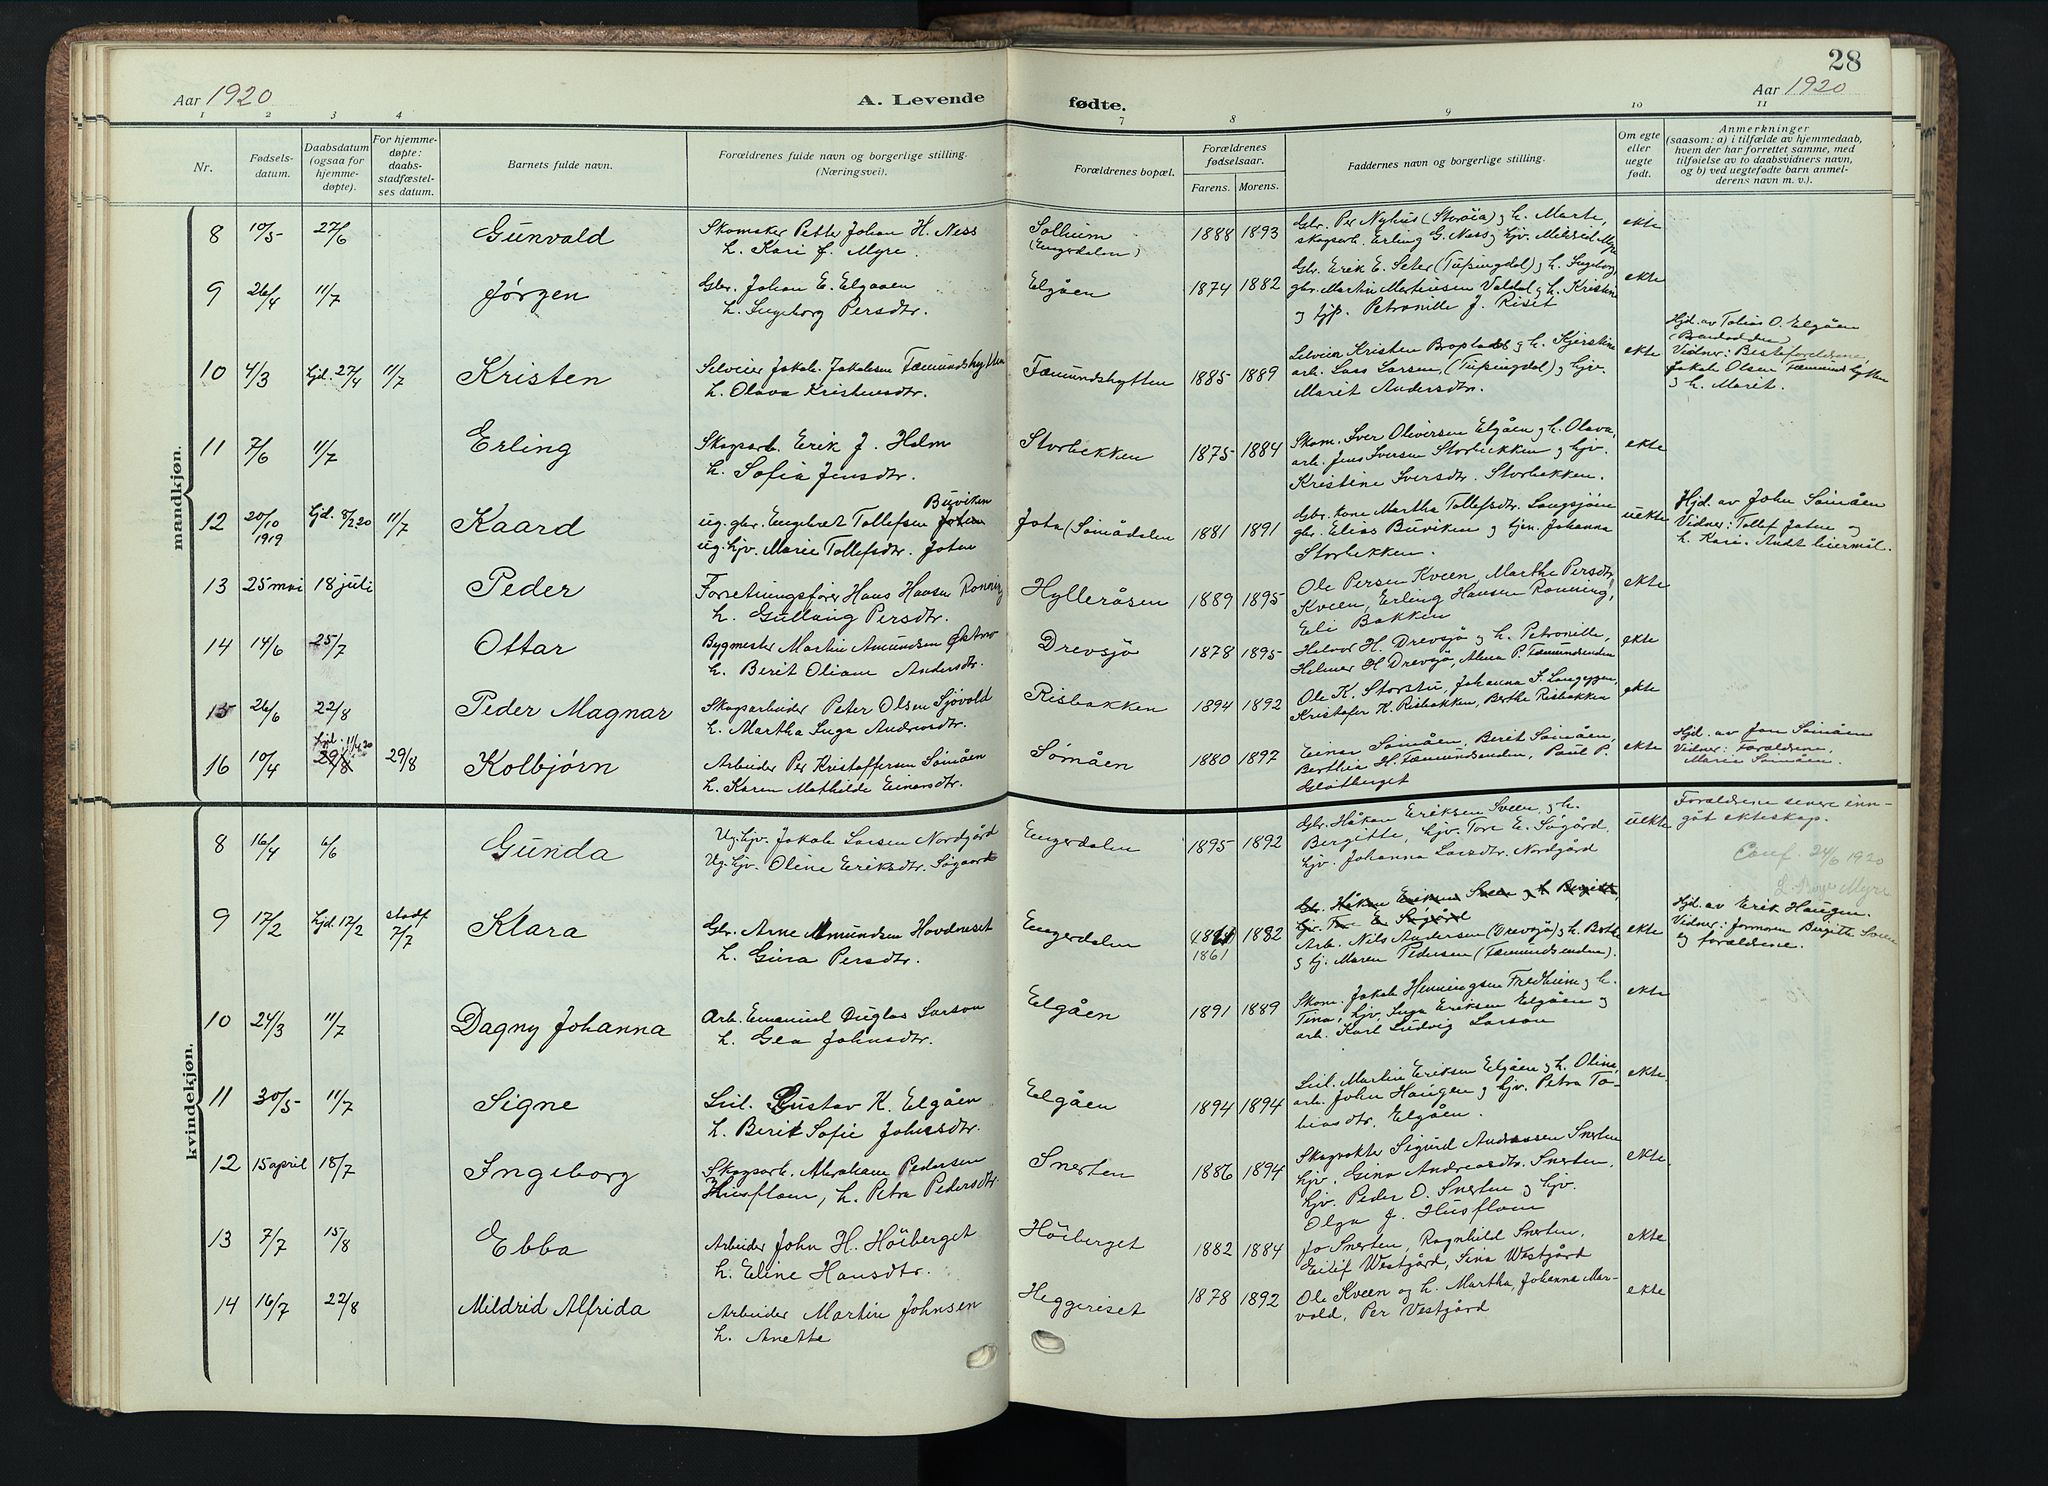 28
Aar 1920 A. Levende fødte. Aar 1920
1 2 3 4 7 8 9 10 11
Nr.
Fødsels-
datum.
Daabsdatum
(ogsaa for
hjemme-
døpte).
For hjemme-
døpte:
daabs-
stadfæstel-
ses datum.
Barnets fulde navn.
Forældrenes fulde navn og borgerlige stilling.
(Næringsvei).
Forældrenes bopæl.
Forældrenes
fødselsaar.
Farens. Morens.
Faddernes navn og borgerlige stilling.
Om egte
eller
uegte
født.
Anmerkninger
(saasom: a) i tilfælde av hjemmedaab,
hvem der har forrettet samme, med
tilføielse av to daabsvidners navn,
og b) ved uegtefødte barn anmel-
derens navn m. v.).
mandkjøn.
8 10/5 27/6 Gunvald
Skomaker Petter Johan H. Ness
h. Kari J. Myre.
Solheim
(Engerdalen)
1888 1893
Gbr. Per Nyhus (Storøia) og h. Marte,
skogsarb. Erling G. Ness og hjv. Mildrid Myre
ekte
9 26/4 11/7 Jørgen
Gbr. Johan E. Elgaaen
h. Ingeborg Persdtr.
Elgåen
1874 1882
Gbr. Erik E. Seter (Tufsingdal) og h. Ingeborg,
gbr. Martin Martinsen Valdal og h. Kristine
og hjp. Petronille J. Riset
ekte
10 4/3 hjd. 27/4 11/7 Kristen
Selveier Jakob Jakobsen Fæmundshytten
h. Olava Kristensdtr.
Fæmundshytten
1885 1889
Selveier Kristen og h. Kjerstine
arb. Lars Larsen, (Tufsingdal) og hjv.
Marit Andersdtr.
ekte
Hjd. av Tobias O. Elgåen
Vidner: Besteforeldrene,
Jakob Olsen Fæmundshytten
og h. Marit.
11 7/6 11/7 Erling
Skogsarb. Erik J. Holm
h. Sofia Jensdtr.
Storbekken
1875 1884
Skom. Iver Oliversen Elgåen og h. Olava,
arb. Jens Iversen Storbekken og hjv.
Kristine Iversdtr. Storbekken.
ekte
12 20/10 1919 hjd. 8/2 20 11/7 Kaard
Buviken
ug. gbr. Engebret Tollefsen
ug. hjv. Marie Tollefsdtr. Joten
Jota (Sømådalen
1881 1891
Gbr. kone Martha Tollefsdtr. Langsjøen
gbr. Elias Buviken og hjv. Johanna
Storbekken.
uekte
Hjd. av John Sømåen
Vidner: Tollef Joten og
h. Kari. Andt leiermål.
13 25 mai 18 juli Peder
Forretningsfører Hans Hansen Rønning
h. Gullaug Persdtr.
Hylleråsen
1889 1895
Ole Persen Kveen, Marthe Persdtr
Kveen, Erling Hansen Rønning,
Eli Bakken
ekte
14 14/6 25/7 Ottar
Bygmester Martin Amundsen
h. Berit Oliane Andersdtr.
Drevsjø
1878 1895
Halvor H. Drevsjø og h. Petronille,
Helmer H Drevsjø, Alma P. Fæmundsenden
ekte
15 26/6 22/8 Peder Magnar
Skogsarbeider Peter Olsen Sjøvold
h. Martha Inga Andersdtr.
Risbakken
1894 1892
Ole K. Storstu, Johanna S. Langeggen,
Kristofer K. Risbakken, Berthe Risbakken
ekte
16 10/4 hjd. 11/4 20 29/8 29/8 Kolbjørn
Arbeider Per Kristoffersen Sømåen
h. Karen Mathilde Einarsdtr.
Sømåen
1880 1897
Einar Sømåen, Berit Sømåen,
Berthea H. Fæmundsenden, Paul P.
Gløtberget
ekte
Hjd. av Jon Sømåen
Vidner: Foreldrene,
Maria Sømåen.
kvindekjøn.
8 16/4 6/6 Gunda
Ug. hjv. Jakob Larsen Nordgård
Ug. hjv. Oline Eriksdtr. Søgaard
Engerdalen
1895 1892
Gbr. Håken Eriksen Sveen og h.
Bergitte, hjv. Tore E. Søgård,
hjv. Johanna Larsdtr. Nordgård
uekte
Foreldrene senere inn-
gåt ekteskap.
Conf. 24/6 1920
Myre
9 17/2 hjd. 17/2 stadf 7/7 Klara
Gbr. Arne Amundsen Hovdreset
h. Gina Persdtr.
Engerdalen
1861 1882
Gbr. Håken Eriksen Sveen og h Bergitte,
hjv. Tore E Søgård
Arb. Nils Andersen (Drevsjø) og h. Berte
og hj. Maren Pedersen (Fæmundsenden).
ekte
Hjd. av Erik Haugen.
Vidner: Jormoren Birgitte Sveen
og foreldrene.
10 24/3 11/7 Dagny Johanna
Arb. Emanuel Duglas Larson
h. Gea Johnsdtr.
Elgåen
1891 1889
Skom. Jakob Henningsen Fredheim og h.
Tina, hjv. Inga Eriksen Elgåen og
arb. Karl Ludvig Larson
ekte
11 30/5 11/7 Signe
Leil. Gustav K. Elgåen
h. Berit Sofie Johnsdtr.
Elgåen
1894 1894
Leil. Martin Eriksen Elgåen og h. Oline,
arb. John Haugen og hjv. Petra To-
biasdtr. Elgåen.
ekte.
12 15 april 18/7 Ingeborg
Skogsarb. Abraham Pedersen
Husfloen, h. Petra Pedersdtr.
Snerten
1886 1894
Skogvokter Sigurd Andreassen Snerten
hjv. Gina Andreasdtr. Snerten,
hjv. Peder O. Snerten og hjv.
Olga J. Husfloen
ekte.
13 7/7 15/8 Ebba
Arbeider John H. Höiberget
h. Eline Hansdtr.
Höiberget
1882 1884
Jo Snerten, Ragnhild Snerten,
Eilif Westgård, Sina Westgård
ekte
14 16/7 22/8 Mildrid Alfrida
Arbeider Martin Johnsen
h. Anette
Heggeriset
1878 1892
Ole Kveen og h. Martha, Johanna Mar-
vold, Per Vestgård
ekte